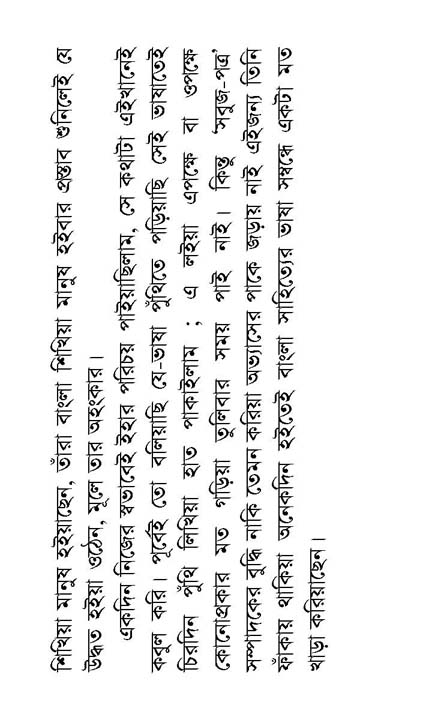 শিখিয়া মানুষ হইয়াছেন, তাঁরা বাংলা শিখিয়া মানুষ হইবার প্রস্তাব শুনিলেই যে
উদ্ধত হইয়া ওঠেন, মূলে তার অহংকার।
একদিন নিজের স্বভাবেই ইহার পরিচয় পাইয়াছিলাম, সে কথাটা এইখানেই
কবুল করি। পূর্বেই তো বলিয়াছি যে-ভাষা পুঁথিতে পড়িয়াছি সেই ভাষাতেই
চিরদিন পুঁথি লিখিয়া হাত পাকাইলাম ; এ লইয়া এপক্ষে বা ওপক্ষে
কোনোপ্রকার মত গড়িয়া তুলিবার সময় পাই নাই। কিন্তু ‘সবুজ-পত্র’
সম্পাদকের বুদ্ধি নাকি তেমন করিয়া অভ্যাসের পাকে জড়ায় নাই এইজন্য তিনি
ফাঁকায় থাকিয়া অনেকদিন হইতেই বাংলা সাহিত্যের ভাষা সম্বন্ধে একটা মত
খাড়া করিয়াছেন।